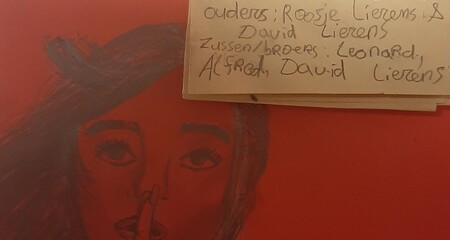 ouders: Roosje Lierens &
David Lierens
Zussen/broers: Leonard,
Alfred, David Lierens